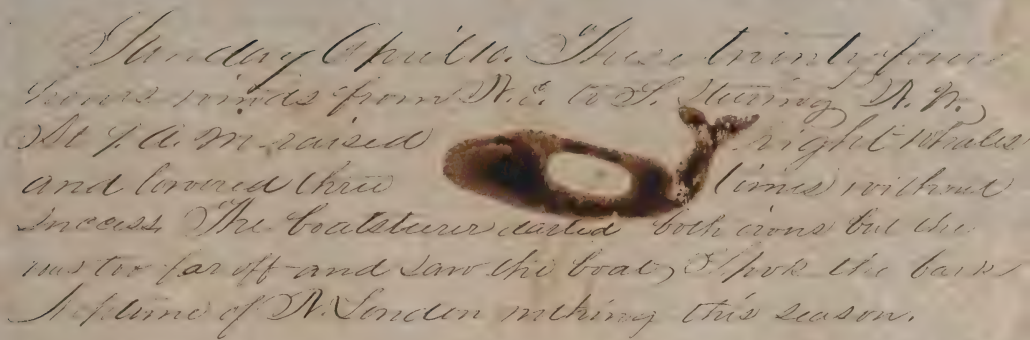 Sunday April 10. These twenty four
hours winds from N.E. to S. Stering N. N.
At 7 A. M. raised right whales
and lowered three times without
success. The boatsteerer darted both irons but
was too far off and saw the boat, Spok the bark
Neptune of N. London nothing this season.